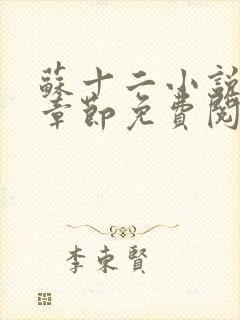 蘇十二小說
章節免費閱
李東賢